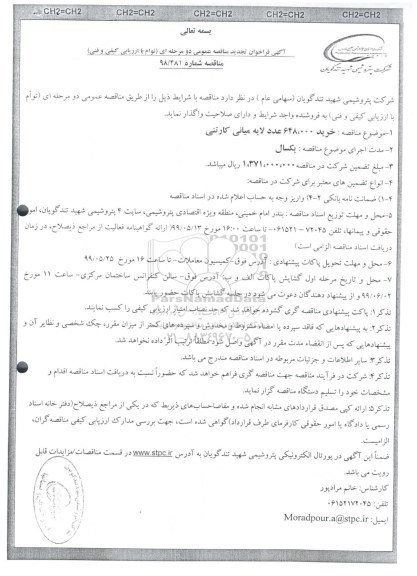 CH2=CH2 CH2=CH2 CH2=CH2 CH2=CH2 CH2=CH2
بسمه تعالی
آگهی فراخوان تجدید مناقصه عمومی دو مرحله ای (توام با ارزیابی کیفی و فنی)
مناقصه شماره ۹۸/۳۸۱
شرکت پتروشیمی شهید تندگویان
شرکت پتروشیمی شهید تندگویان (سهامی عام) در نظر دارد مناقصه با شرایط ذیل را از طریق مناقصه عمومی دو مرحله ای (توأم
با ارزیابی کیفی و فنی) به فروشنده واجد شرایط و دارای صلاحیت واگذار نماید.
۱-موضوع مناقصه : خرید ۶۴۸،۰۰۰ عدد لایه میانی کارتنی
۲-مدت اجرای موضوع مناقصه : یکسال
۳- مبلغ تضمین شرکت در مناقصه ۱،۳۷۱،۰۰۰،۰۰۰ ریال میباشد.
۴-انواع تضمین های معتبر برای شرکت در مناقصه:
۴-۱) ضمانت نامه بانکی ۴-۲) واریز وجه به حساب اعلام شده در اسناد مناقصه
۵-محل و مهلت توزیع اسناد مناقصه : بندر امام خمینی، منطقه ویژه اقتصادی پتروشیمی، سایت ۴ پتروشیمی شهید تندگویان، امور
حقوقی و پیمانها، تلفن ۷۲۰۴۵-۰۶۱۵۲۱ تا ساعت ۱۶:۰۰ مورخ ۹۹/۰۵/۱۳ (ارائه گواهینامه فعالیت از مراجع ذیصلاح، در زمان
دریافت اسناد مناقصه الزامی است)
۶- محل و مهلت تحویل پاکات پیشنهادی : آدرس فوق-کمیسیون معاملات - تا ساعت ۱۶ مورخ ۹۹/۰۵/۲۵
۷- محل و تاریخ مرحله اول گشایش پاکات الف و ب: آدرس فوق- سالن کنفرانس ساختمان مرکزی- ساعت ۱۱ مورخ
۹۹/۰۶/۰۲ و از پیشنهاد دهندگان دعوت می شود در جلسه گشایش پاکات حضور یابند.
تذکر۱: پاکت پیشنهادی مناقصه گری گشوده خواهد شد که حد نصاب امتیاز ارزیابی کیفی را کسب نمایند.
تذکر۲: به پیشنهادهایی که فاقد سپرده یا امضاء مشروط و مخدوش و سپرده های کمتر از میزان مقرر، چک شخصی و نظایر آن و
پیشنهادهایی که پس از انقضاء مدت مقرر در آگهی واصل شود مطلقاً ترتیب اثر داده نخواهد شد.
تذکر۳: سایر اطلاعات و جزئیات مربوطه در اسناد مناقصه مندرج می باشد.
تذکر۴: شرکت در فرآیند مناقصه جهت مناقصه گری فراهم خواهد شد که حضوراً نسبت به دریافت اسناد مناقصه اقدام و
مشخصات خود را تسلیم دستگاه مناقصه گزار نماید.
تذکر۵: ارائه کپی مصدق قراردادهای مشابه انجام شده و مفاصاحسابهای ذیربط که در یکی از مراجع ذیصلاح(دفتر خانه اسناد
رسمی یا دادگاه یا امور حقوقی کارفرمای طرف قرارداد)گواهی شده است، جهت بررسی مدارک ارزیابی کیفی مناقصه گران،
الزامیست.
ضمناً این آگهی در پورتال الکترونیکی پتروشیمی شهید تندگویان به آدرس www.stpc.ir در قسمت مناقصات/مزایدات قابل
رویت می باشد.
کارشناس: خانم مرادپور
تلفن: ۰۶۱۵۲۱۷۲۰۴۵
ایمیل: Moradpour.a@stpc.ir
CH2=CH2 CH2=CH2 CH2=CH2 CH2=CH2 CH2=CH2